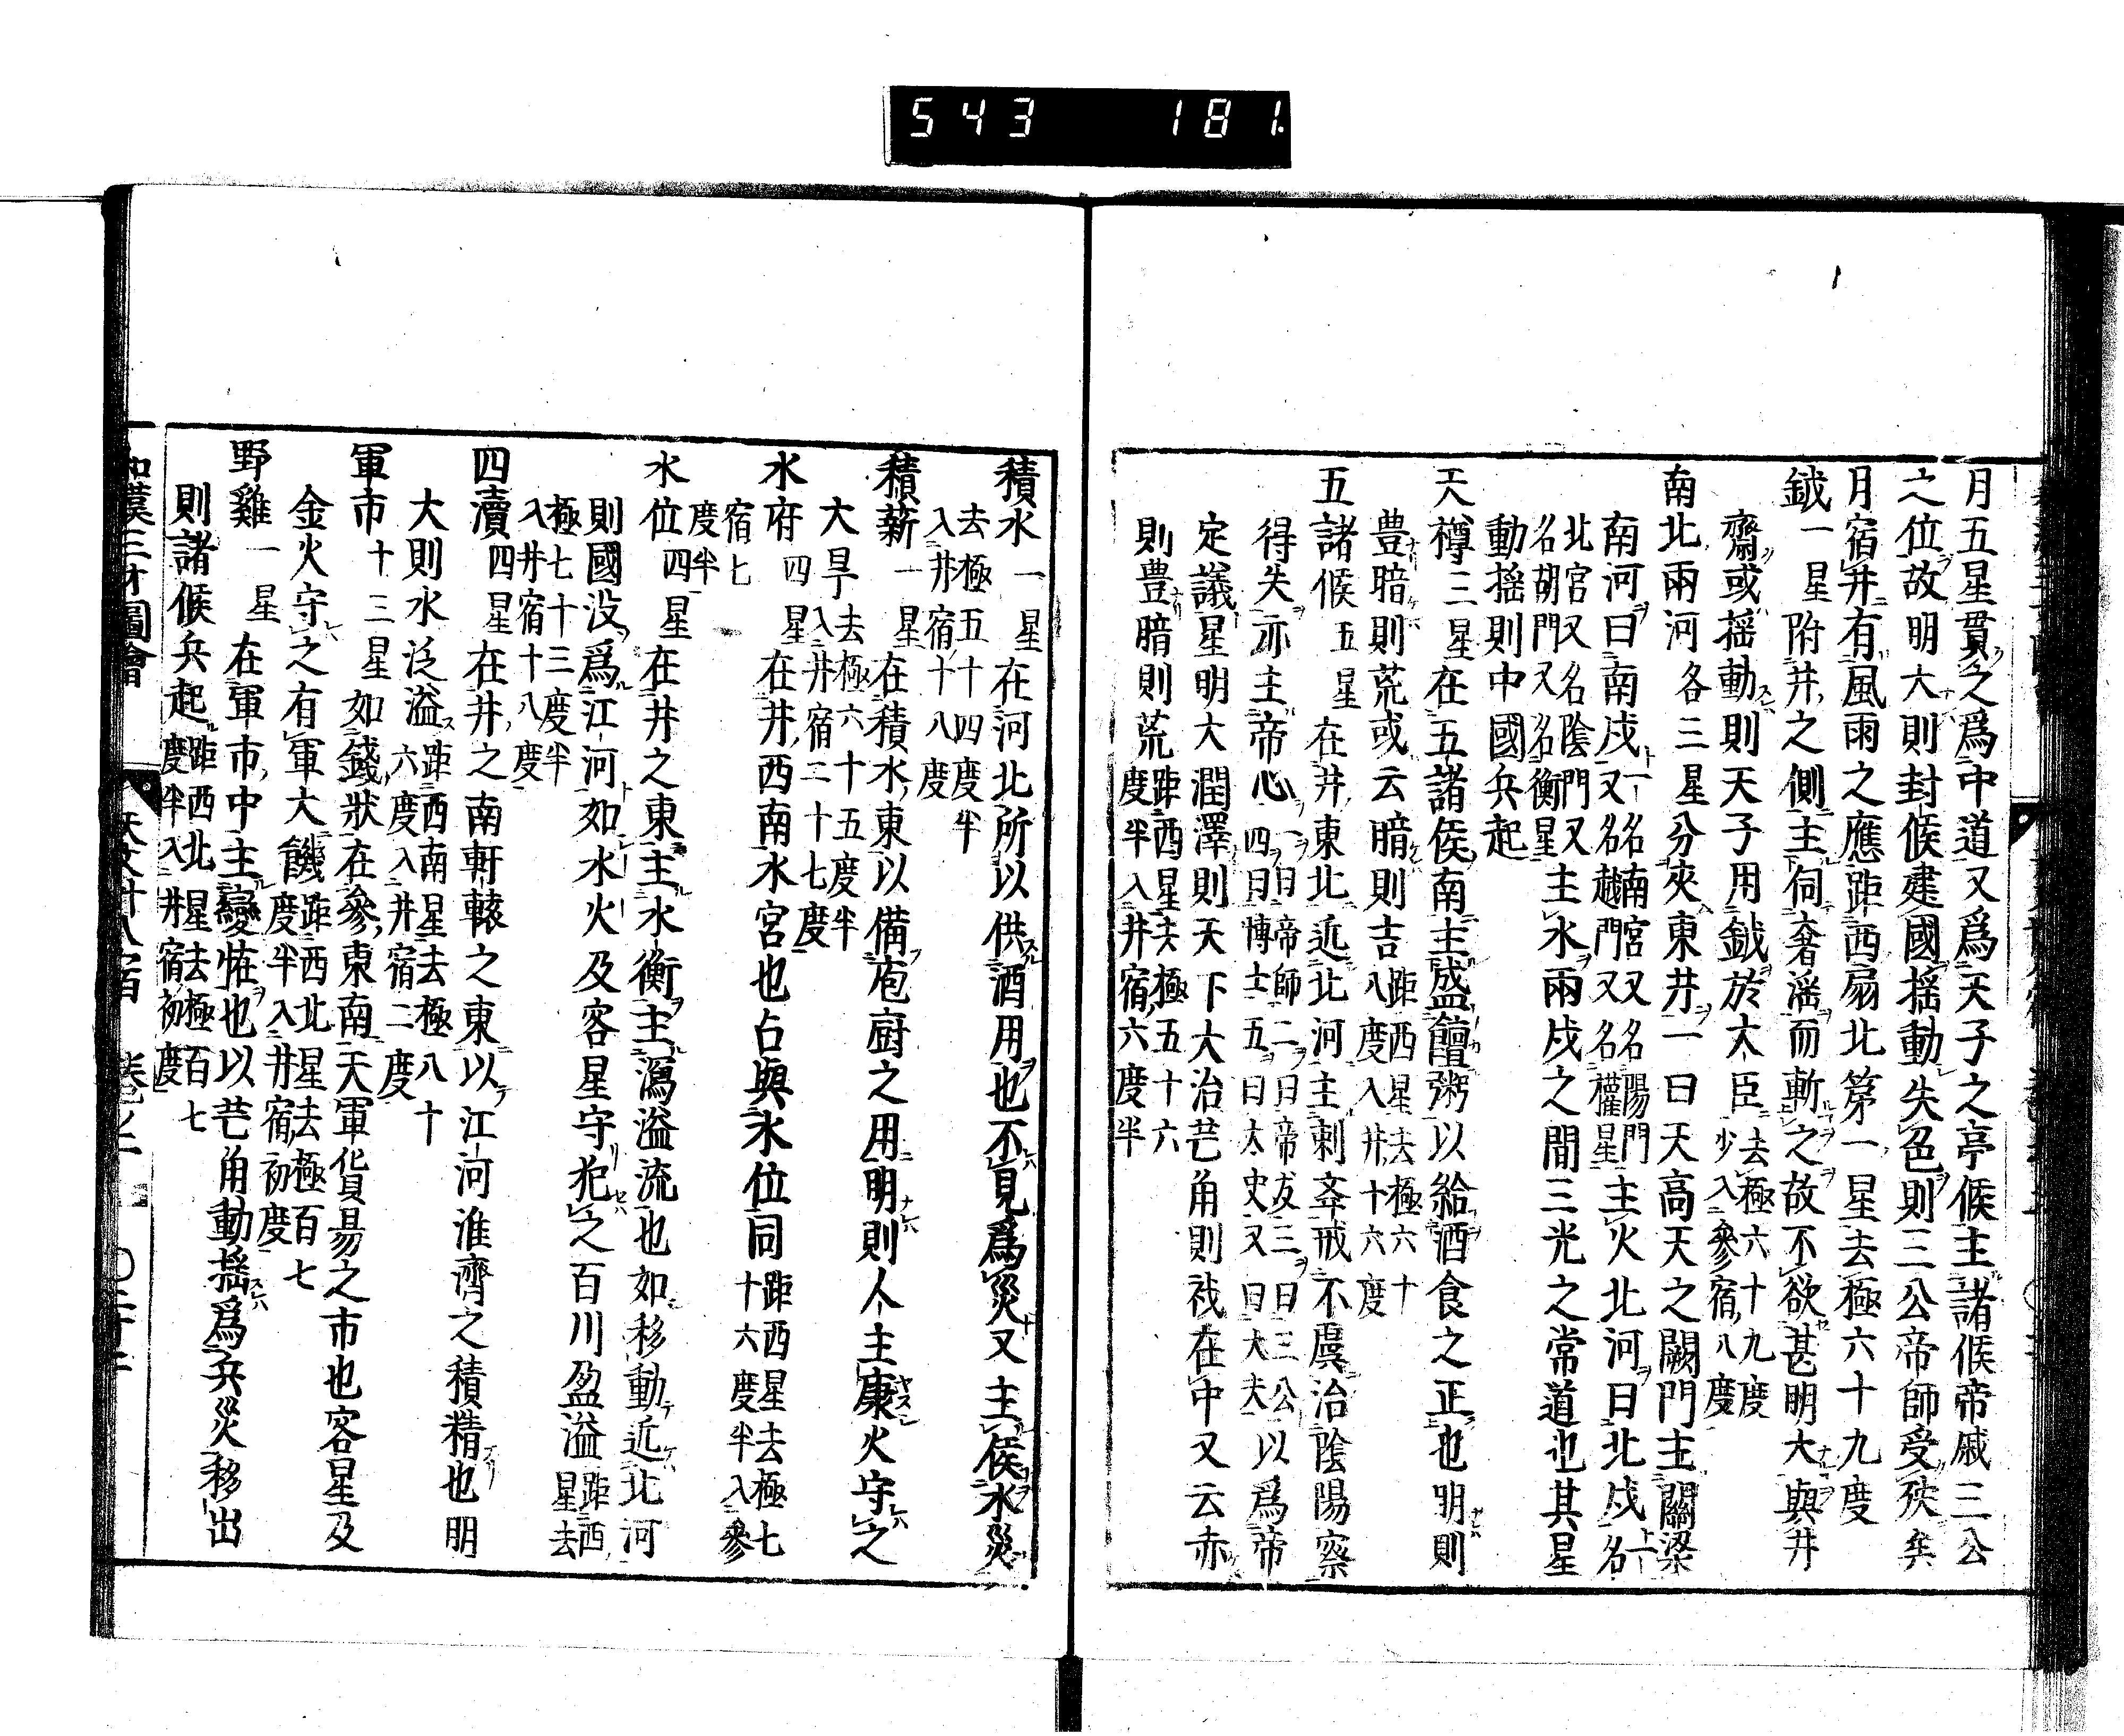 543 181.
月五星貫之爲中道又爲天子之亭候主諸候帝戚三公
之位故明大則封候建國揺動失色則三公帝師受殃矣
月宿井有風雨之應距西扇北第一星去極六十九度
鉞一星附井之側主伺奢滛而斬之故不欲甚明大與井
齋或揺動則天子用鉞於大臣去極六十九度
少入參宿八度
南北兩河各三星分夾東井一曰天高天之闕門主關梁
南河曰南戍一名南宮又名陽門
又名越門又名權星主火北河曰北戍一名
北宮又名陰門又
名胡門又名衡星主水兩戍之間三光之常道也其星
動揺則中國兵起
天樽三星在五諸侯南主盛饘粥以給酒食之正也明則
豊暗則荒或云暗則吉距西星去極六十
八度入井十六度
五諸候五星在井東北近北河主刺奎戒不虞治陰陽察
得失亦主帝心一曰帝師二曰帝友三曰三公
四曰博士五曰太史又曰大夫以爲帝
定議星明大潤澤則天下大治芒角則禍在中又云赤
則豊暗則荒距西星去極五十六
度半入井宿六度半
積水一星在河北所以供酒用也不見爲災又主候水災
去極五十四度半
入井宿十八度
積薪一星在積水東以備庖厨之用明則人主康火守之
大旱去極六十五度半
入井宿二十七度
水府四星在井西南水宮也占與水位同距西星去極七
十六度半入參
宿七
度半
水位四星在井之東主水衡主瀉溢流也如移動近北河
則國没爲江河如水火及客星守犯之百川盈溢距西
星去
極七十三度半
入井宿十八度
四瀆四星在井之南軒轅之東以江河淮濟之積精也明
大則水泛溢距西南星去極八十
六度入井宿二度
軍市十三星如錢狀在參東南天軍貨易之市也客星及
金火守之有軍大饑距西北星去極百七
度半入井宿初度
野雞一星在軍市中主變怪也以芒角動揺爲兵災移出
則諸候兵起距西北星去極百七
度半入井宿初度
和漢三才圖會 天文廿八宿 卷之二